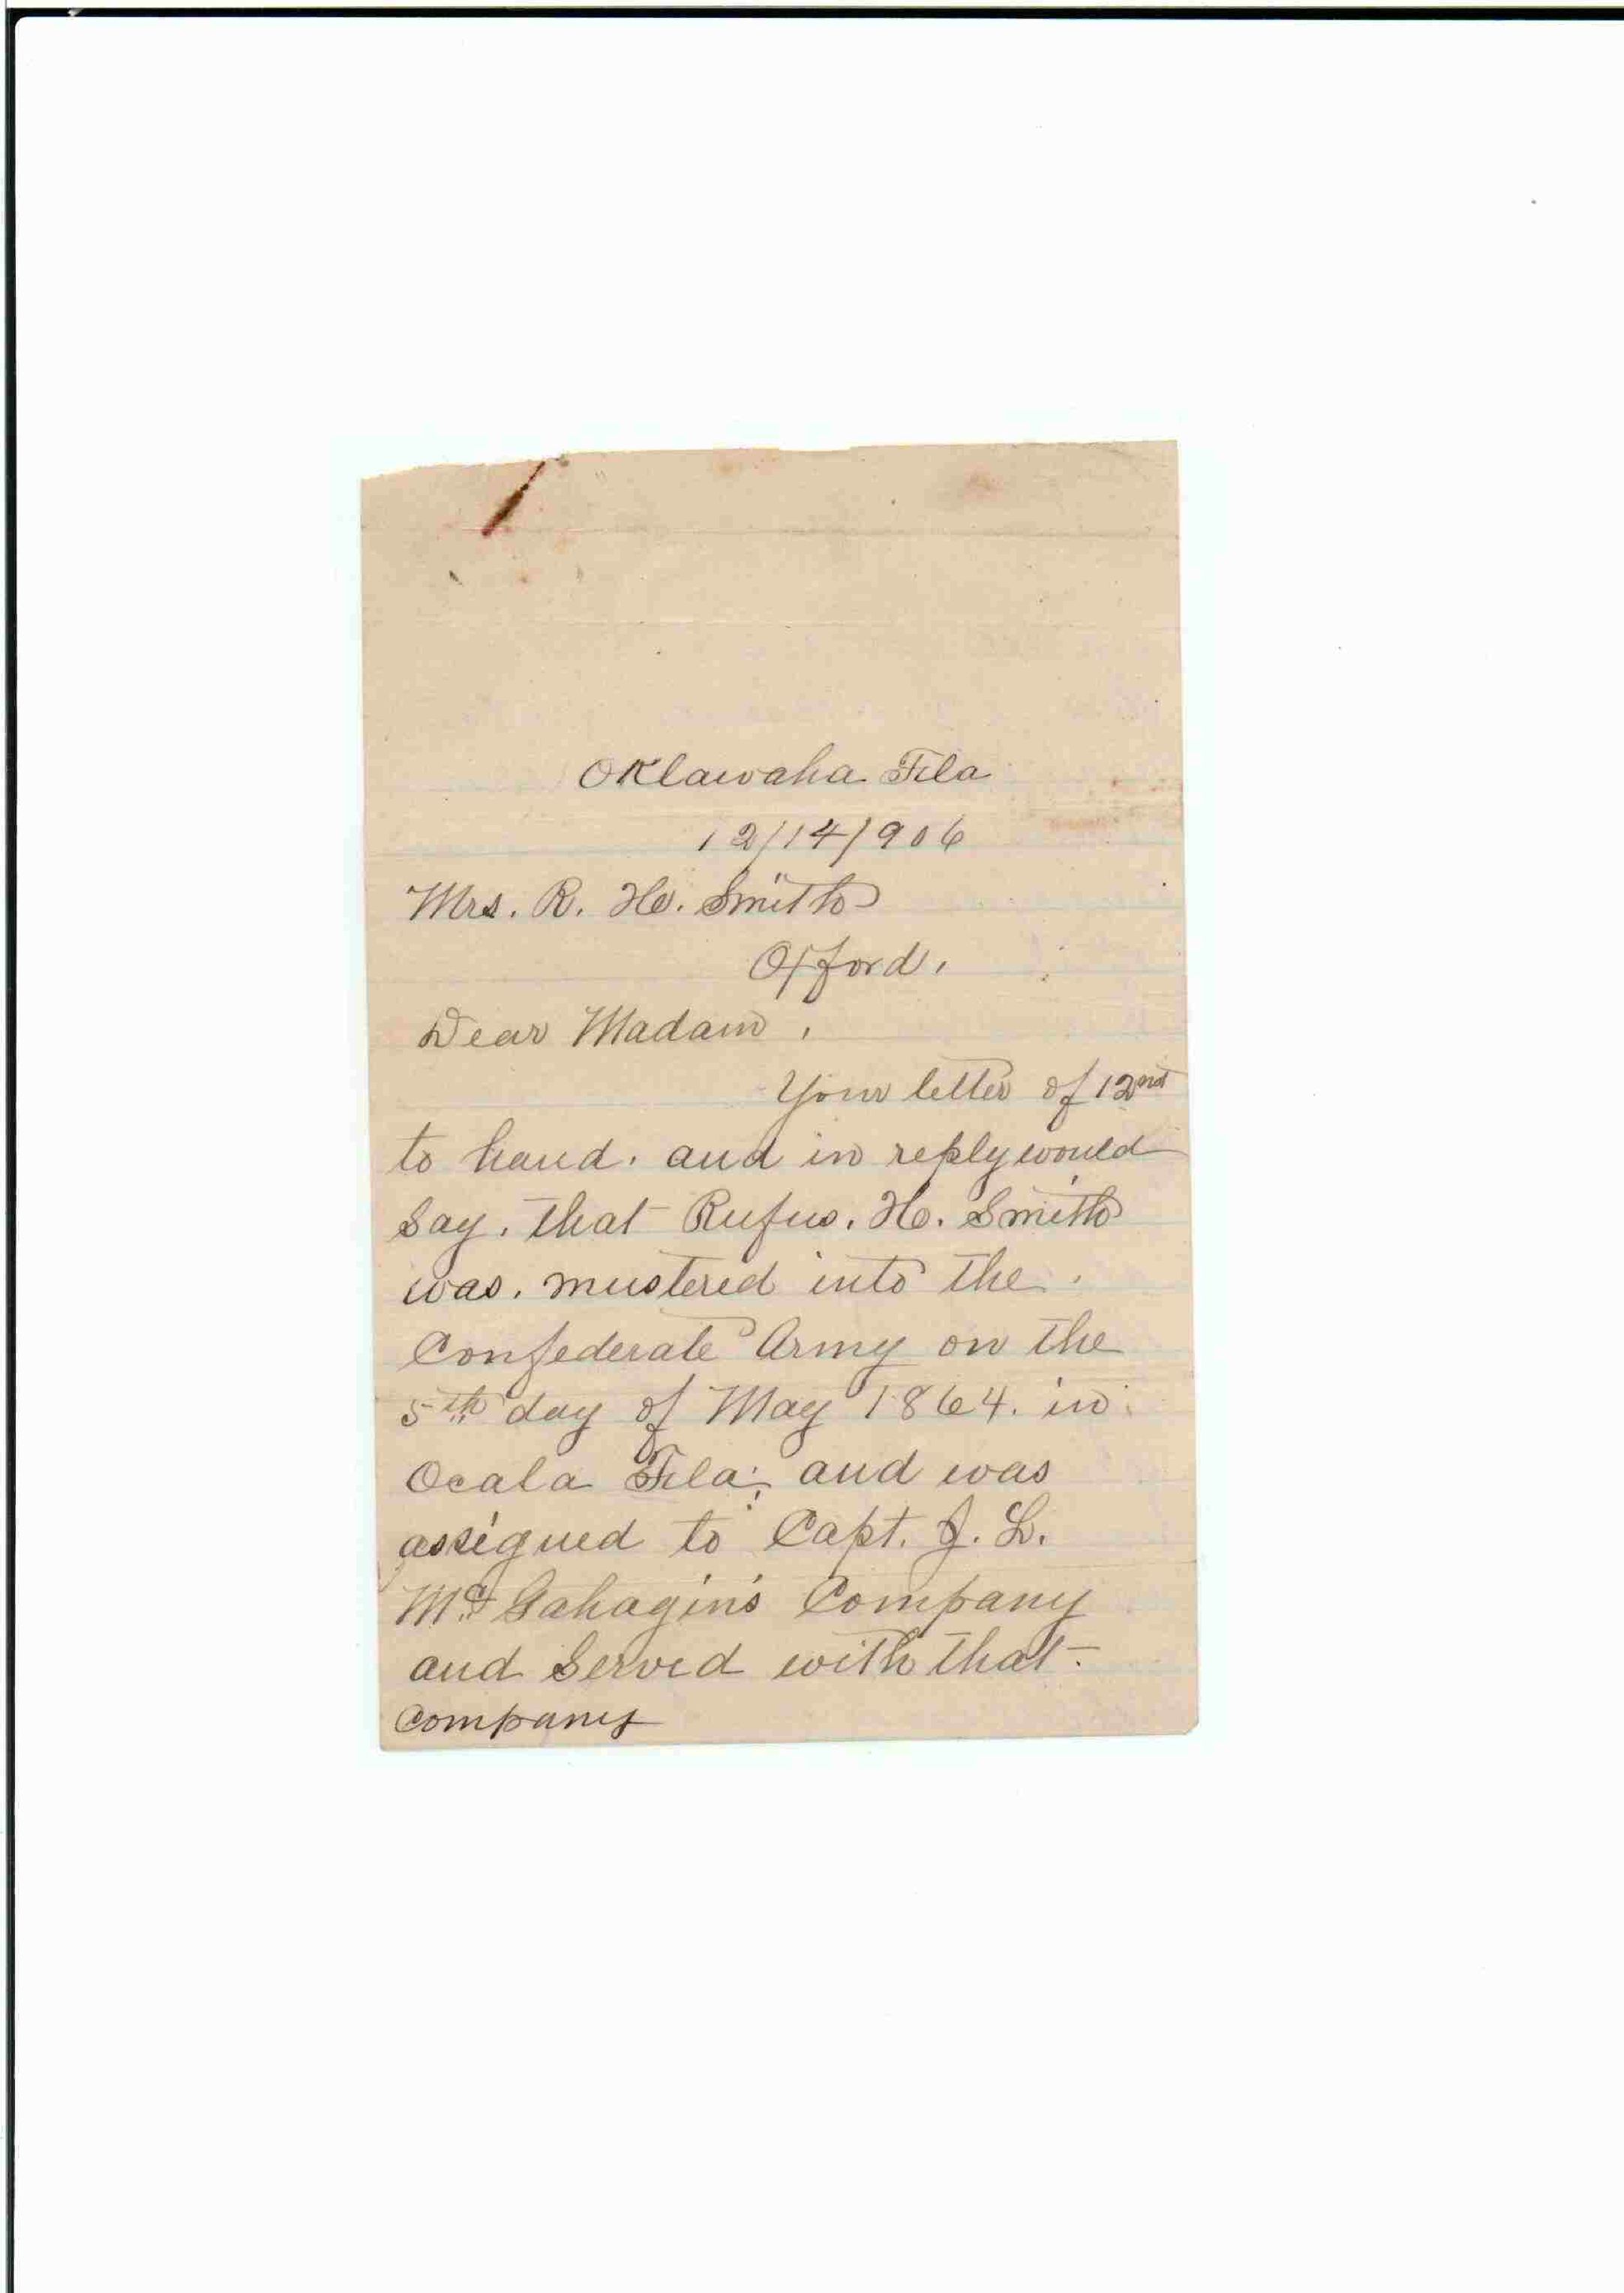 Oklawaha Fla
12/14/906
Mrs. R. H. Smith
Oxford.
Dear Madam,
Your letter of 12nd
to hand. and in reply would
say. that Rufus. H. Smith
was. mustered into the
Confederate Army on the
5th day of May 1864. in
Ocala Fla; and was
assigned to Capt. J. L.
Mc Gahagin's Company
and Served with that
Company